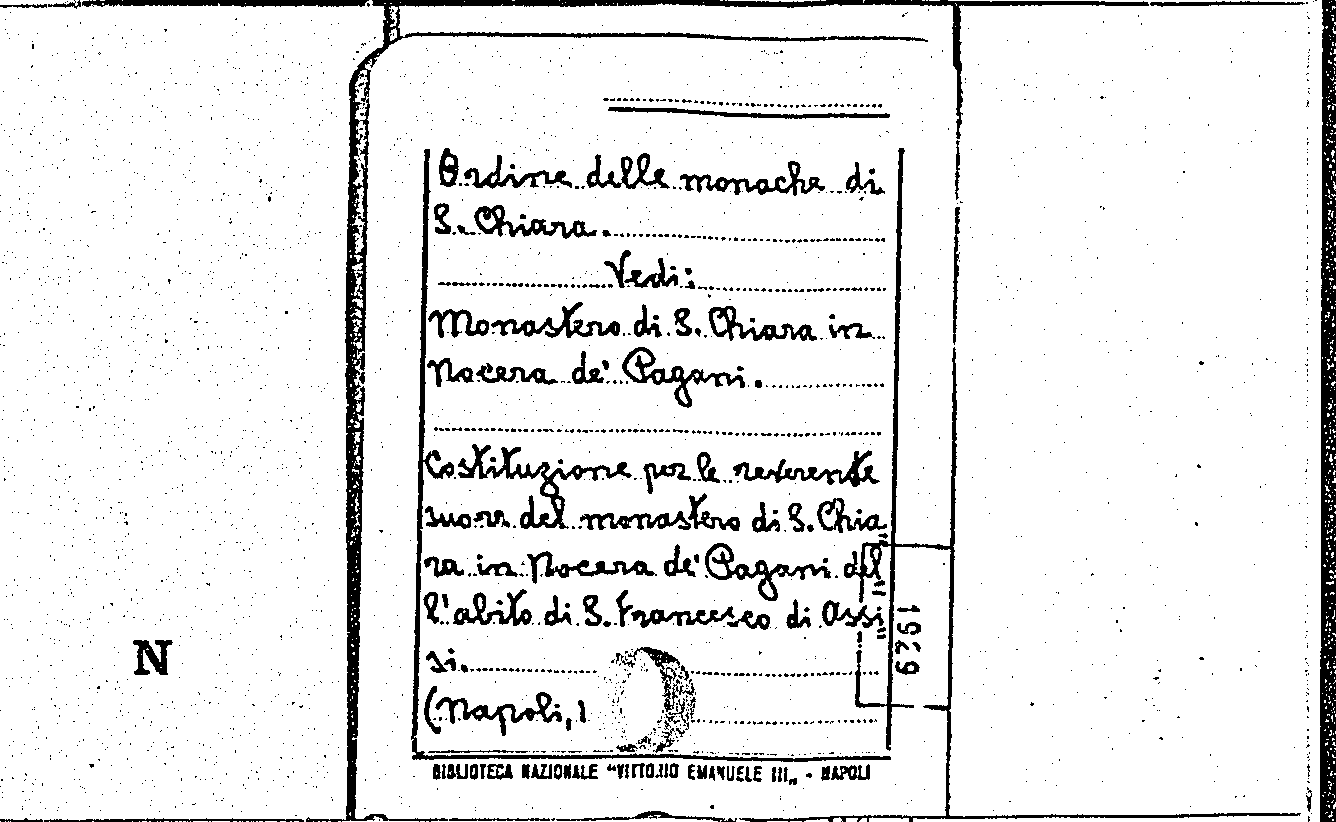 Ordine delle monache di
S. Chiara.
Vedi:
Monastero di S. Chiara in
Nocera de' Pagani.
Costituzione per le reverente
suore del monastero di S. Chia"
ra in Nocera de' Pagani del"
l'abito di S. Francesco di Assi"
si.
(Napoli, 1
BIBLIOTECA NAZIONALE "VITTORIO EMANUELE III„ - NAPOLI
1929
N